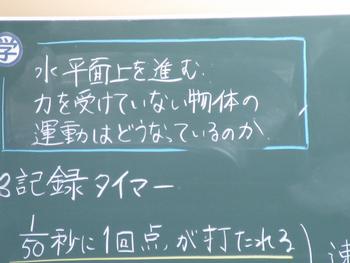 学
水平面上を進む
力を受けていない物体の
運動はどうなっているのか
記録タイマー
1/50秒に1回点が打たれる